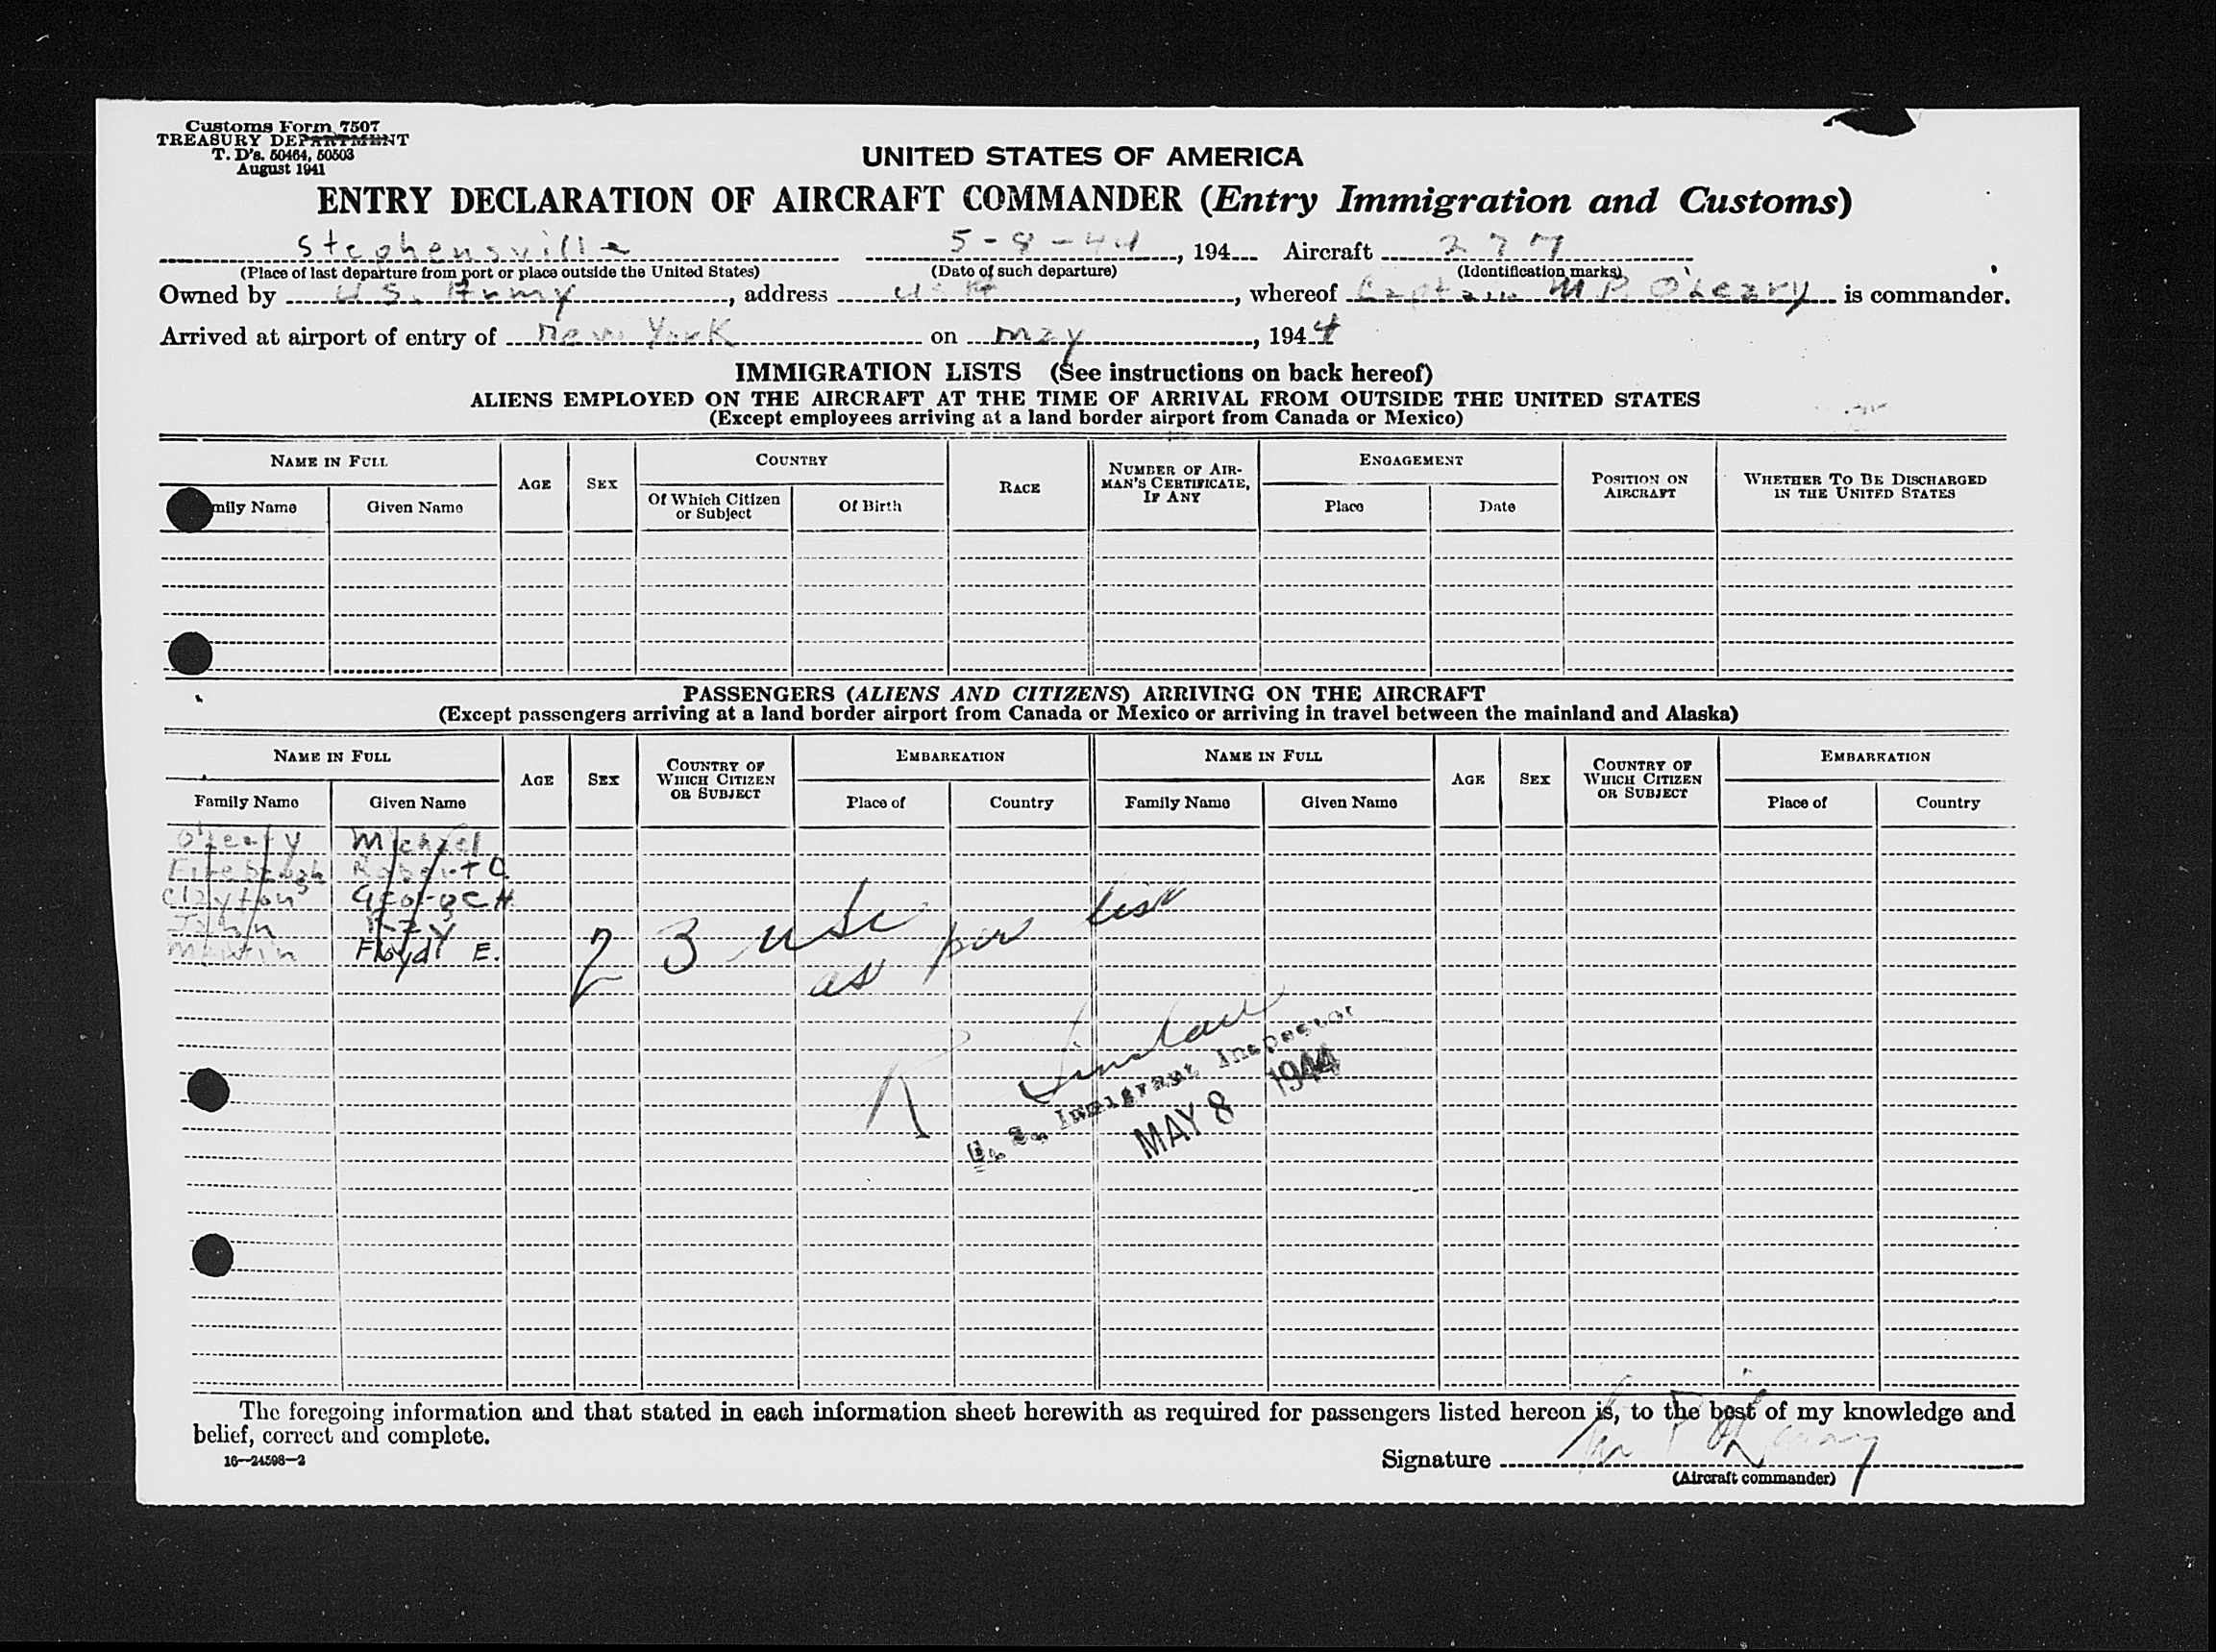 Customs Form 7507
TREASURY DEPARTMENT
T. D's. 50464, 50503
August 1941
UNITED STATES OF AMERICA
ENTRY DECLARATION OF AIRCRAFT COMMANDER (Entry Immigration and Customs)
Stephensville 5-8-44, 194 Aircraft 277
(Place of last departure from port or place outside the United States) (Date of such departure) (Identification marks)
Owned by U.S. Army, address, whereof Captain M P. O'Leary is commander.
Arrived at airport of entry of New York on May, 1944
IMMIGRATION LISTS (See instructions on back hereof)
ALIENS EMPLOYED ON THE AIRCRAFT AT THE TIME OF ARRIVAL FROM OUTSIDE THE UNITED STATES
(Except employees arriving at a land border airport from Canada or Mexico)
NAME IN FULL AGE SEX COUNTRY RACE NUMBER OF AIR-MAN'S CERTIFICATE, IF ANY ENGAGEMENT POSITION ON AIRCRAFT WHETHER TO BE DISCHARGED IN THE UNITED STATES
mily Name Given Name Of Which Citizen or Subject Of Birth Place Date
PASSENGERS (ALIENS AND CITIZENS) ARRIVING ON THE AIRCRAFT
(Except passengers arriving at a land border airport from Canada or Mexico or arriving in travel between the mainland and Alaska)
NAME IN FULL AGE SEX COUNTRY OF WHICH CITIZEN OR SUBJECT EMBARKATION NAME IN FULL AGE SEX COUNTRY OF WHICH CITIZEN OR SUBJECT EMBARKATION
Family Name Given Name Place of Country Family Name Given Name Place of Country
O'Leary Michael
Firebaugh Robert C
Clayton George H
John Ray
Martin Floyd E.
23 usc as per list
R
U. S. Immigrant Inspector
MAY 8 1944
The foregoing information and that stated in each information sheet herewith as required for passengers listed hereon is, to the best of my knowledge and
belief, correct and complete.
16—24598-2
Signature M P O'Leary
(Aircraft commander)